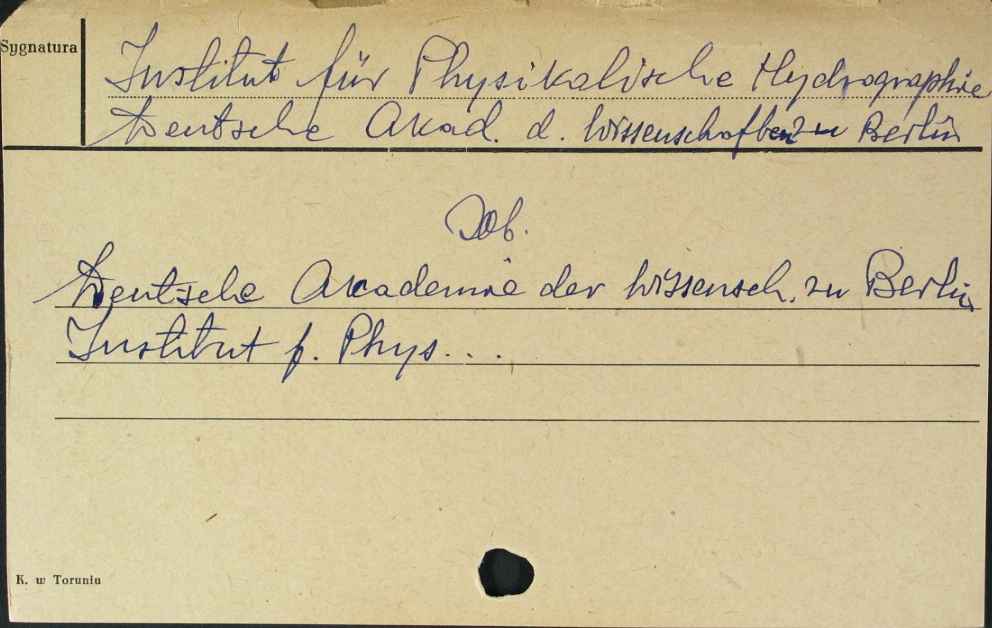 Sygnatura
Institut für Physikalische Hydrographie
Deutsche Akad. d. Wissenschaften zu Berlin
Zob.
Deutsche Akademie der Wissensch. zu Berlin
Institut f. Phys...
K. w Toruniu